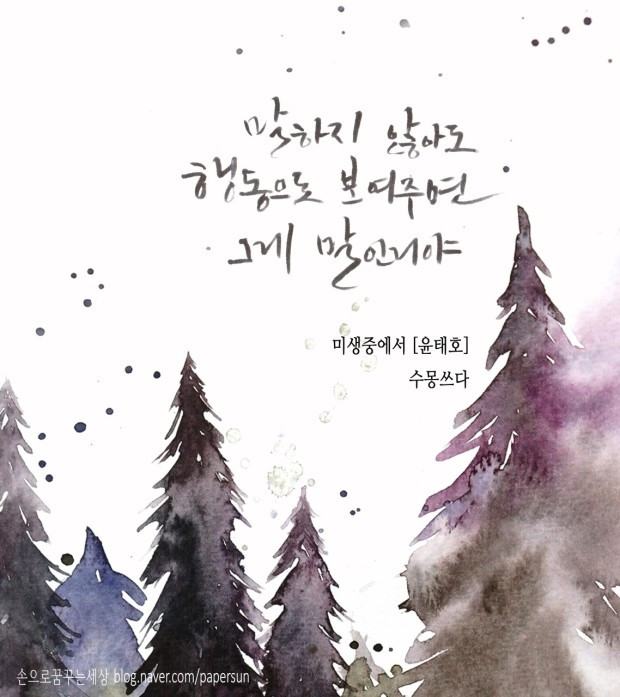 말하지 않아도
행동으로 보여주면
그게 말인거야
미생중에서 [윤태호]
수몽쓰다
손으로꿈꾸는세상 blog.naver.com/papersun